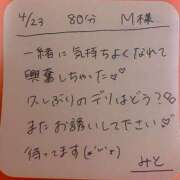 4/23 80分 M様
一緒に気持ちよくなれて
興奮しちゃった♡
久しぶりのデリはどう?
またお誘いして下さい♡
待ってます(*´˘`*)
みと